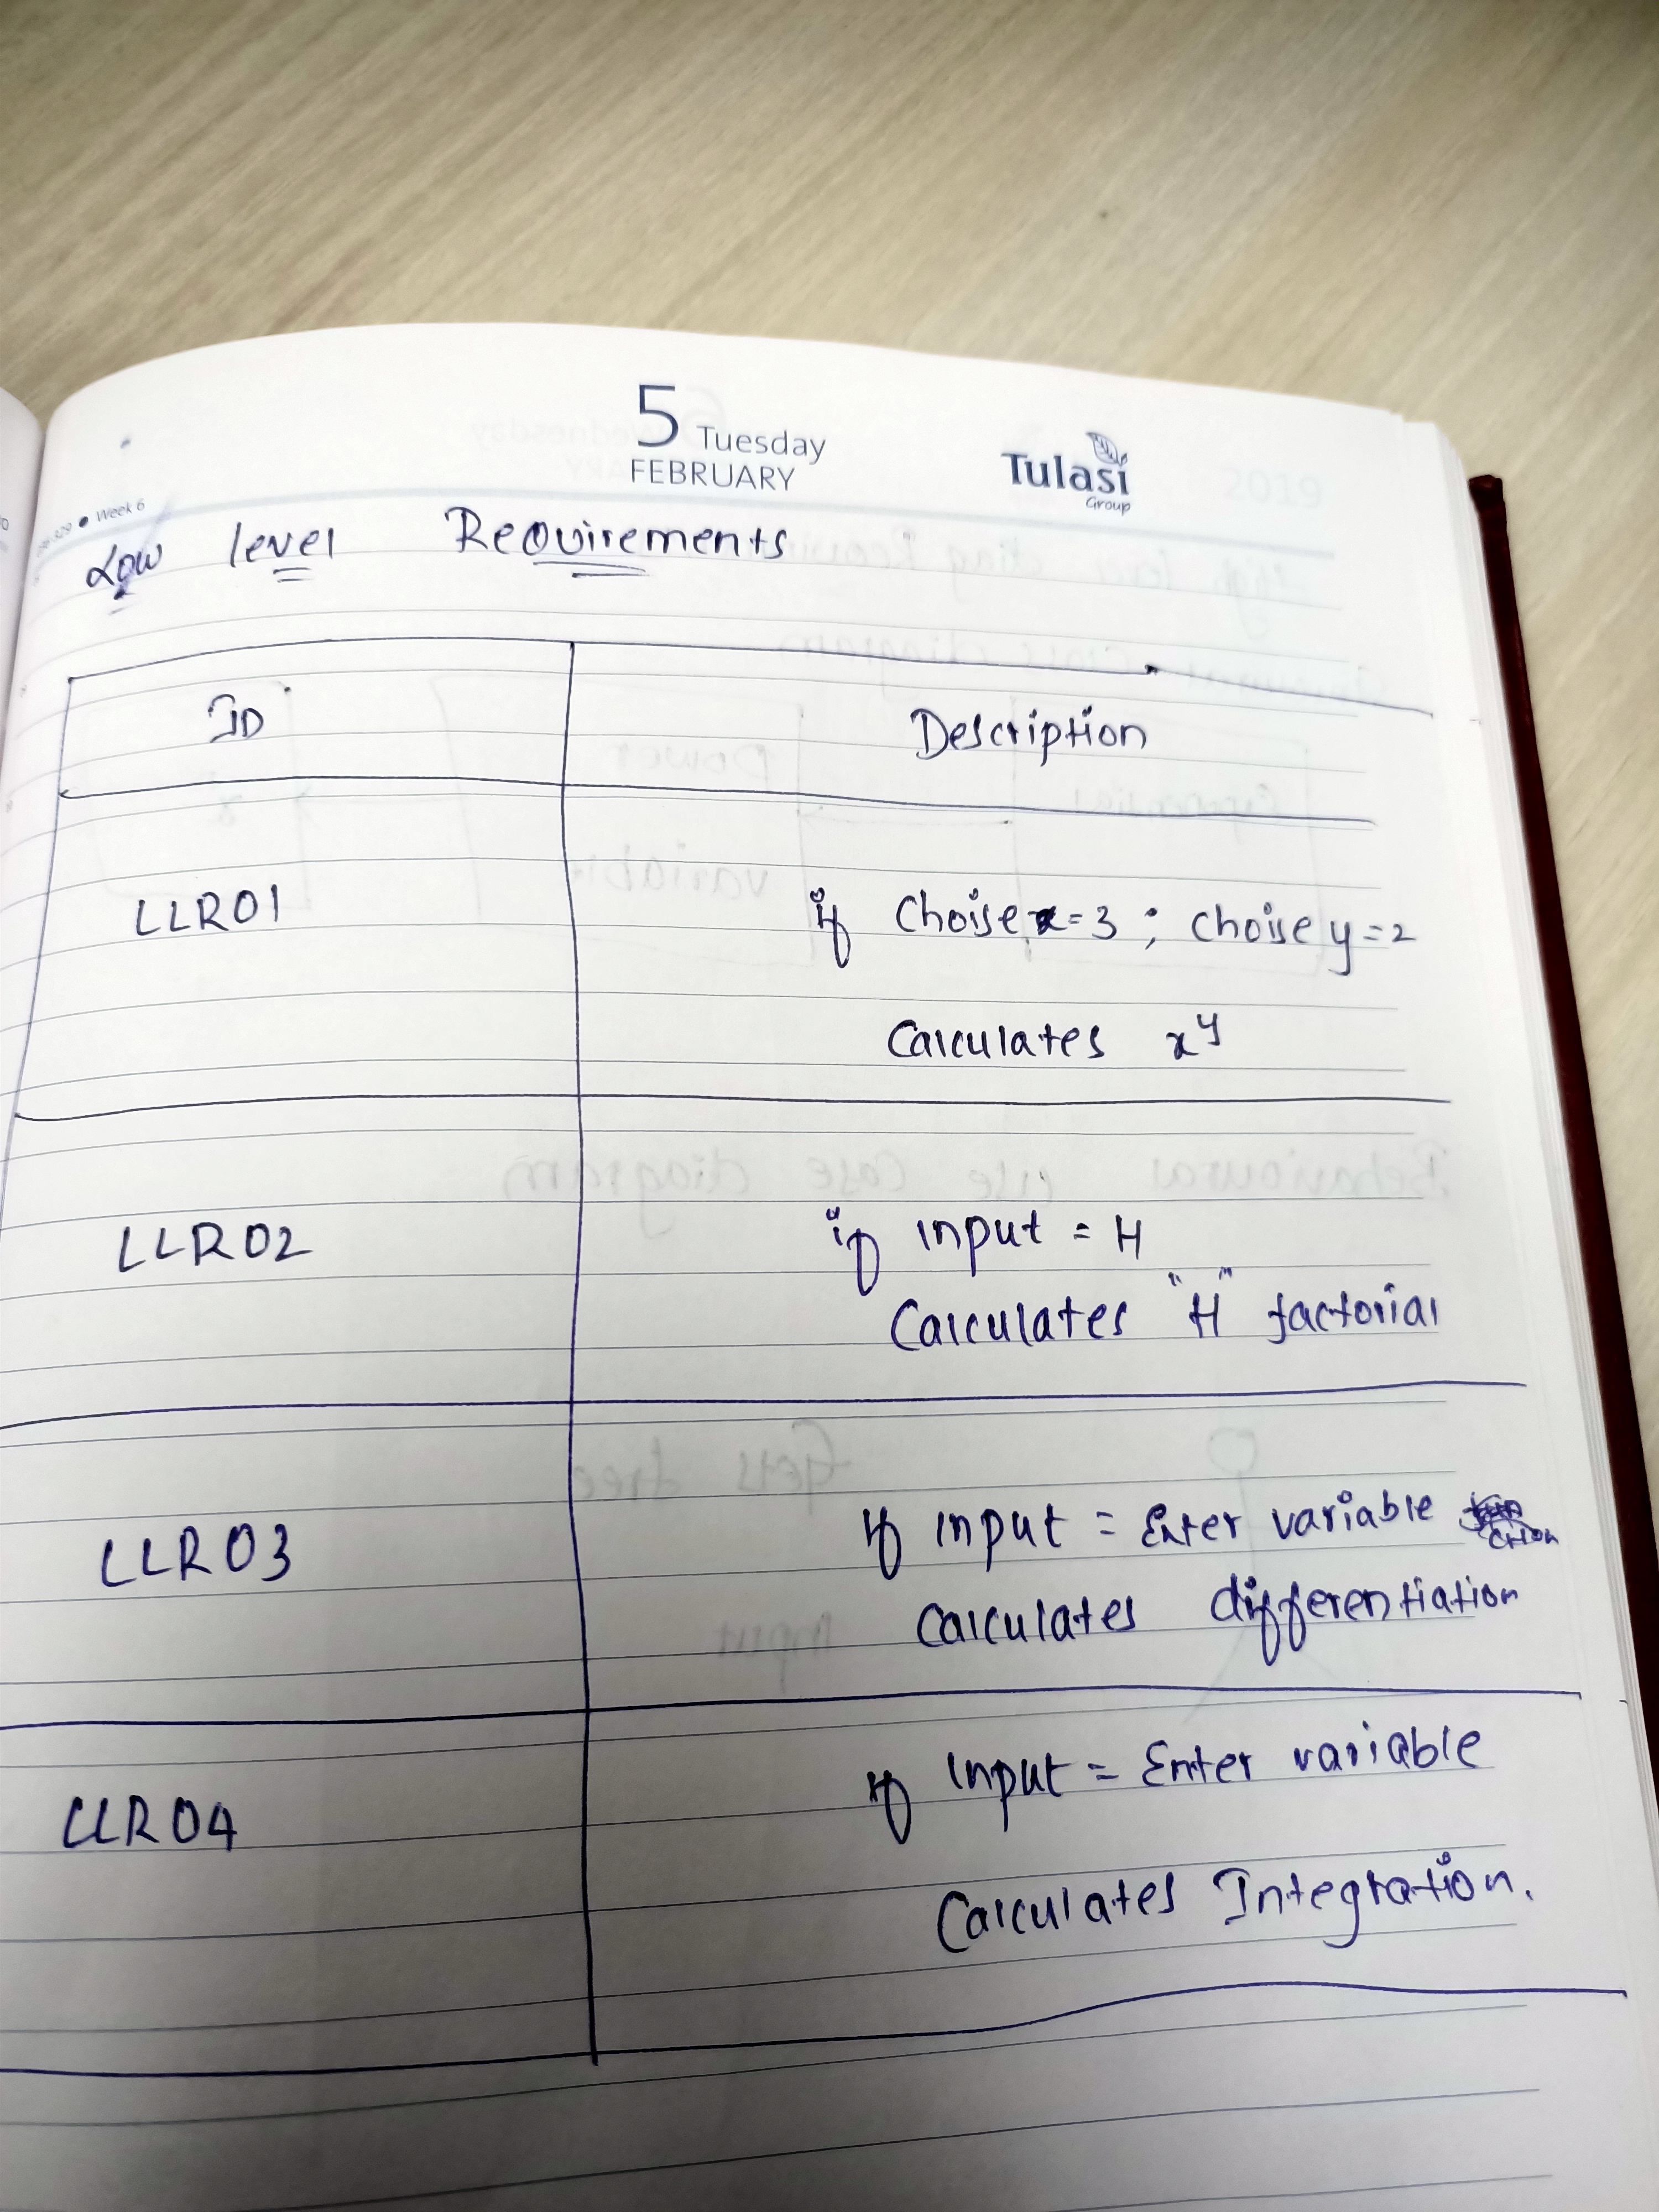 5 Tuesday
FEBRUARY
Tulasi
Group
2019
Week 6
Low level Requirements
ID Description
LLR01 if Choise x=3 ; choise y=2
Calculates x^y
LLR02 if input = H
Calculates "H" factorial
LLR03 if input = Enter variable
Calculates differentiation
LLR04 if input = Enter variable
Calculates Integration.